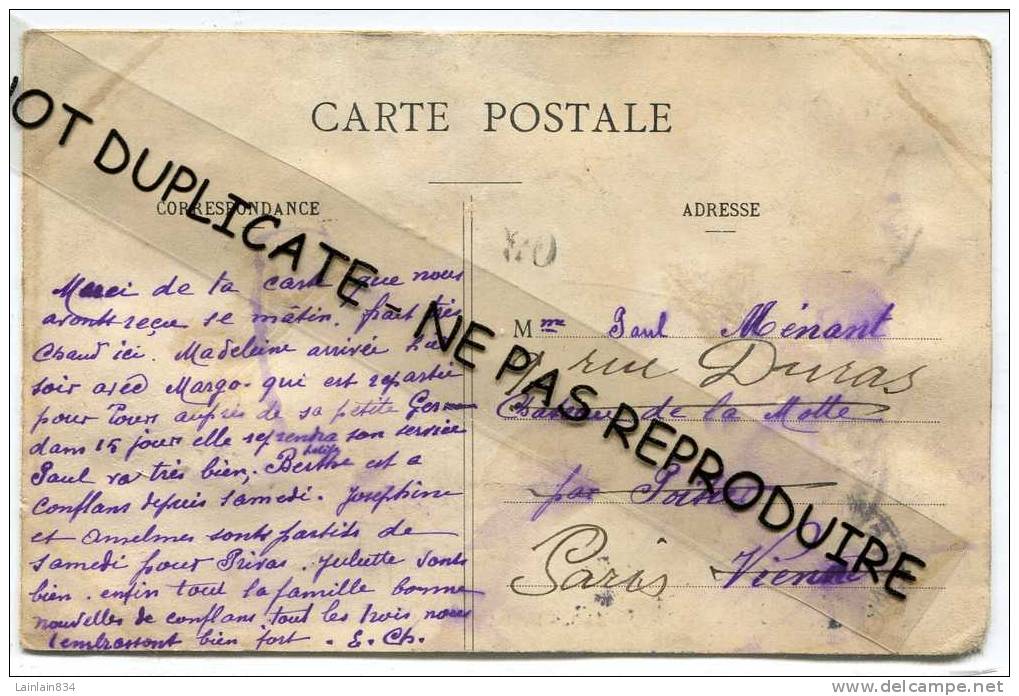 CARTE POSTALE
CORRESPONDANCE
ADRESSE
Merci de ta carte que nous
avonts reçu se mâtin. fait très
chaud ici. Madeleine arrivée
soir avec Margo. qui est repartie
pour Tours auprès de sa petite Ger
dans 15 jours elle reprendra son service
Paul va très bien, Berthe est a
Conflans depuis samedi. Josephine
et Anselmes sonts partits de
samedi pour Privas. Juliette vonts
bien. enfin tout la famille bonne
nouvelles de conflans tout les trois nous
t'embrassont bien fort. E. Ch.
Mme Paul Ménant
9 rue Duras
de la Motte
par
Paris Vienne
NOT DUPLICATE - NE PAS REPRODUIRE
Lainlain834
www.delcampe.net